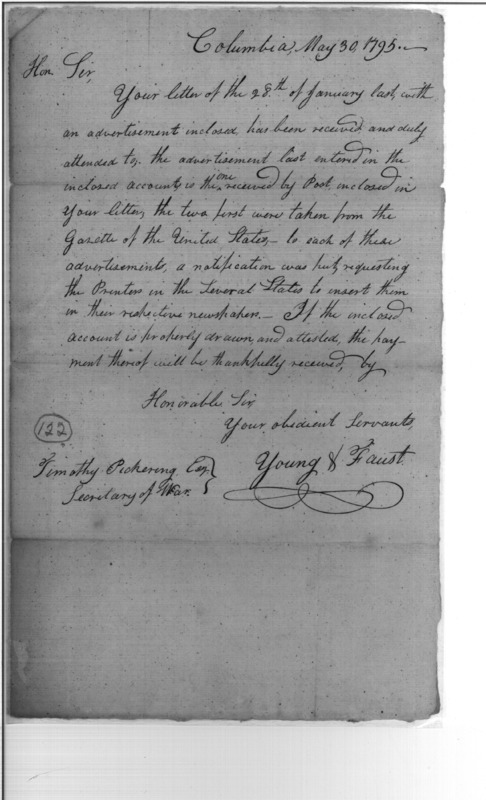 Columbia, May 30, 1795.
Hon. Sir,
Your letter of the 28.th of January last, with
an advertisement inclosed, has been received and duly
attended to,- the advertisement last entered in the
inclosed account, is the one received by Post, inclosed in
Your letter, the two first were taken from the
Gazette of the United States,- to each of these
advertisements, a notification was put, requesting
the Printers in the Several States to insert them
in their respective newspapers.- If the inclosed
account is properly drawn, and attested, the pay-
ment thereof will be thankfully received, by
Honorable Sir,
Your obedient Servants,
Young & Faust.
122
Timothy Pickering Esq.
Secretary of War.